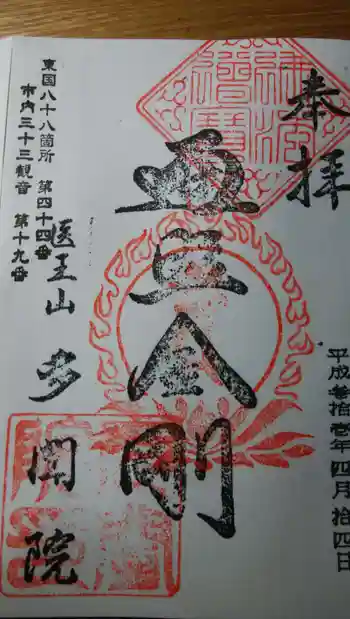 奉拝
平成参拾壱年四月拾四日
五大金剛
東国八十八箇所 第四十四番
市内三十三観音 第十九番
医王山
多聞院